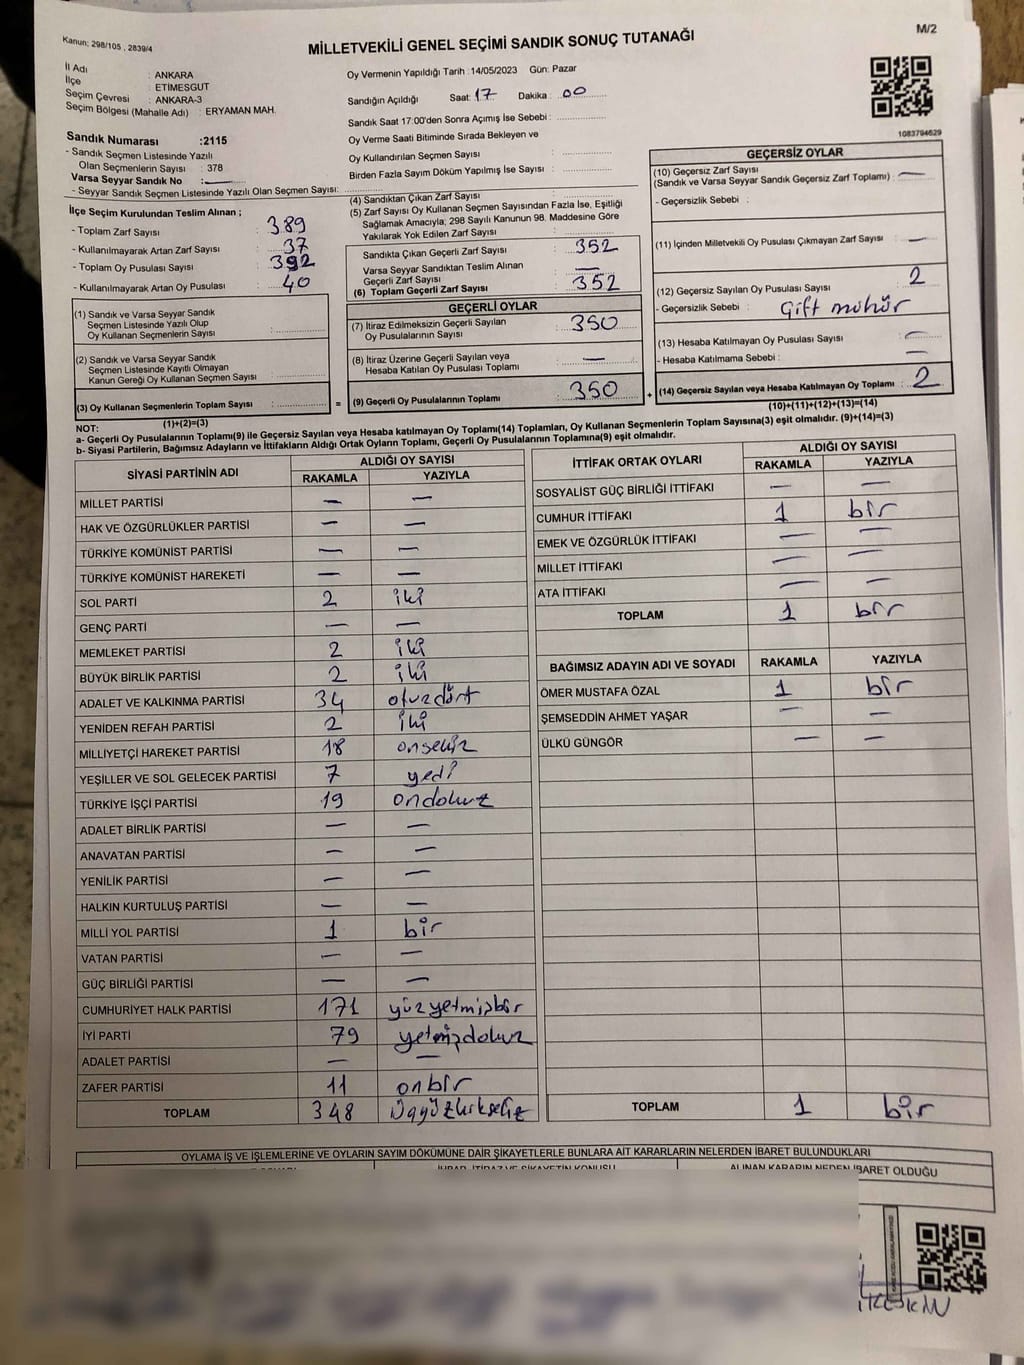 M/2
Kanun; 298/105 , 2839/4
MİLLETVEKİLİ GENEL SEÇİMİ SANDIK SONUÇ TUTANAĞI
İl Adı : ANKARA
İlçe : ETİMESGUT
Seçim Çevresi : ANKARA-3
Seçim Bölgesi (Mahalle Adı) : ERYAMAN MAH.
Oy Vermenin Yapıldığı Tarih :14/05/2023 Gün: Pazar
Sandığın Açıldığı Saat: 17 Dakika : 00
Sandık Saat 17:00'den Sonra Açımış İse Sebebi :
Oy Verme Saati Bitiminde Sırada Bekleyen ve
Oy Kullandırılan Seçmen Sayısı :
Birden Fazla Sayım Döküm Yapılmış İse Sayısı :
1083794629
Sandık Numarası :2115
- Sandık Seçmen Listesinde Yazılı
Olan Seçmenlerin Sayısı : 378
Varsa Seyyar Sandık No : —
- Seyyar Sandık Seçmen Listesinde Yazılı Olan Seçmen Sayısı:
İlçe Seçim Kurulundan Teslim Alınan ;
- Toplam Zarf Sayısı : 389
- Kullanılmayarak Artan Zarf Sayısı : 37
- Toplam Oy Pusulası Sayısı : 392
- Kullanılmayarak Artan Oy Pusulası : 40
(1) Sandık ve Varsa Seyyar Sandık
Seçmen Listesinde Yazılı Olup
Oy Kullanan Seçmenlerin Sayısı :
(2) Sandık ve Varsa Seyyar Sandık
Seçmen Listesinde Kayıtlı Olmayan
Kanun Gereği Oy Kullanan Seçmen Sayısı :
(3) Oy Kullanan Seçmenlerin Toplam Sayısı : =
(1)+(2)=(3)
(4) Sandıktan Çıkan Zarf Sayısı :
(5) Zarf Sayısı Oy Kullanan Seçmen Sayısından Fazla İse, Eşitliği
Sağlamak Amacıyla; 298 Sayılı Kanunun 98. Maddesine Göre
Yakılarak Yok Edilen Zarf Sayısı :
Sandıkta Çıkan Geçerli Zarf Sayısı : 352
Varsa Seyyar Sandıktan Teslim Alınan
Geçerli Zarf Sayısı : —
(6) Toplam Geçerli Zarf Sayısı : 352
GEÇERLİ OYLAR
(7) İtiraz Edilmeksizin Geçerli Sayılan
Oy Pusulalarının Sayısı : 350
(8) İtiraz Üzerine Geçerli Sayılan veya
Hesaba Katılan Oy Pusulası Toplamı : —
(9) Geçerli Oy Pusulalarının Toplamı : 350 +
GEÇERSİZ OYLAR
(10) Geçersiz Zarf Sayısı
(Sandık ve Varsa Seyyar Sandık Geçersiz Zarf Toplamı) : —
- Geçersizlik Sebebi :
(11) İçinden Milletvekili Oy Pusulası Çıkmayan Zarf Sayısı : —
(12) Geçersiz Sayılan Oy Pusulası Sayısı : 2
- Geçersizlik Sebebi : Çift mühür
(13) Hesaba Katılmayan Oy Pusulası Sayısı : —
- Hesaba Katılmama Sebebi : —
(14) Geçersiz Sayılan veya Hesaba Katılmayan Oy Toplamı : 2
(10)+(11)+(12)+(13)=(14)
NOT:
a- Geçerli Oy Pusulalarının Toplamı(9) ile Geçersiz Sayılan veya Hesaba katılmayan Oy Toplamı(14) Toplamları, Oy Kullanan Seçmenlerin Toplam Sayısına(3) eşit olmalıdır. (9)+(14)=(3)
b- Siyasi Partilerin, Bağımsız Adayların ve İttifakların Aldığı Ortak Oyların Toplamı, Geçerli Oy Pusulalarının Toplamına(9) eşit olmalıdır.
SİYASİ PARTİNİN ADI ALDIĞI OY SAYISI
RAKAMLA YAZIYLA
MİLLET PARTİSİ — —
HAK VE ÖZGÜRLÜKLER PARTİSİ — —
TÜRKİYE KOMÜNİST PARTİSİ — —
TÜRKİYE KOMÜNİST HAREKETİ — —
SOL PARTİ 2 iki
GENÇ PARTİ — —
MEMLEKET PARTİSİ 2 iki
BÜYÜK BİRLİK PARTİSİ 2 iki
ADALET VE KALKINMA PARTİSİ 34 otuzdört
YENİDEN REFAH PARTİSİ 2 iki
MİLLİYETÇİ HAREKET PARTİSİ 18 onsekiz
YEŞİLLER VE SOL GELECEK PARTİSİ 7 yedi
TÜRKİYE İŞÇİ PARTİSİ 19 ondokuz
ADALET BİRLİK PARTİSİ — —
ANAVATAN PARTİSİ — —
YENİLİK PARTİSİ — —
HALKIN KURTULUŞ PARTİSİ — —
MİLLİ YOL PARTİSİ 1 bir
VATAN PARTİSİ — —
GÜÇ BİRLİĞİ PARTİSİ — —
CUMHURİYET HALK PARTİSİ 171 yüzyetmişbir
İYİ PARTİ 79 yetmişdokuz
ADALET PARTİSİ — —
ZAFER PARTİSİ 11 onbir
TOPLAM 348 üçyüzkırksekiz
İTTİFAK ORTAK OYLARI ALDIĞI OY SAYISI
RAKAMLA YAZIYLA
SOSYALİST GÜÇ BİRLİĞİ İTTİFAKI — —
CUMHUR İTTİFAKI 1 bir
EMEK VE ÖZGÜRLÜK İTTİFAKI — —
MİLLET İTTİFAKI — —
ATA İTTİFAKI — —
TOPLAM 1 bir
BAĞIMSIZ ADAYIN ADI VE SOYADI RAKAMLA YAZIYLA
ÖMER MUSTAFA ÖZAL 1 bir
ŞEMSEDDİN AHMET YAŞAR — —
ÜLKÜ GÜNGÖR — —
TOPLAM 1 bir
OYLAMA İŞ VE İŞLEMLERİNE VE OYLARIN SAYIM DÖKÜMÜNE DAİR ŞİKAYETLERLE BUNLARA AİT KARARLARIN NELERDEN İBARET BULUNDUKLARI
ALINAN KARARIN NEDEN İBARET OLDUĞU